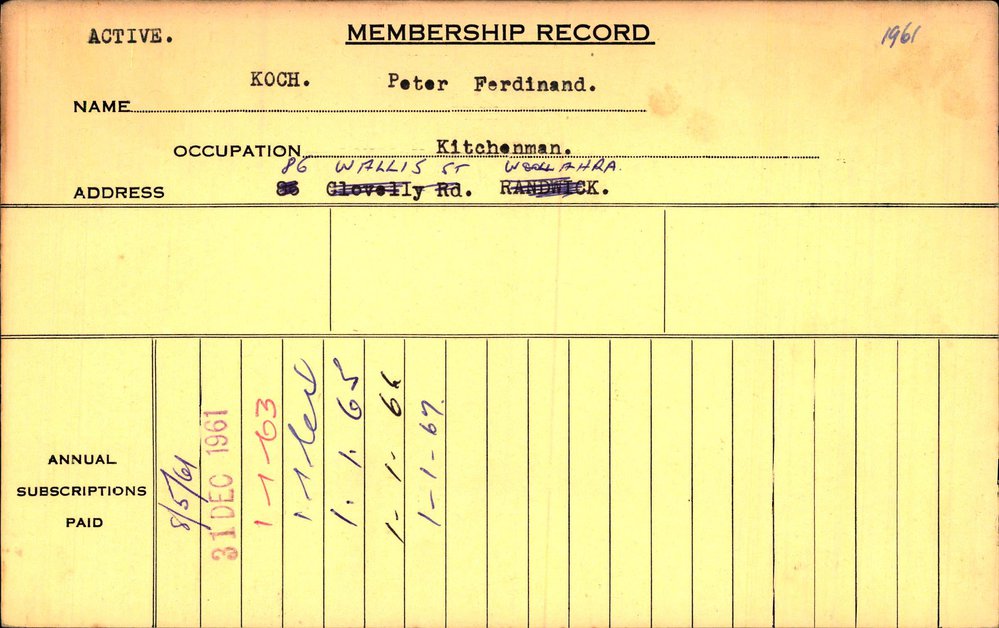 ACTIVE. MEMBERSHIP RECORD 1961
KOCH. Peter Ferdinand.
NAME
OCCUPATION Kitchenman.
86 WALLIS ST WOOLLAHRA.
ADDRESS 86 Clovelly Rd. RANDWICK.
ANNUAL
SUBSCRIPTIONS
PAID
8/5/61
31 DEC 1961
1-1-63
1.1.65
1-1-66
1-1-67.